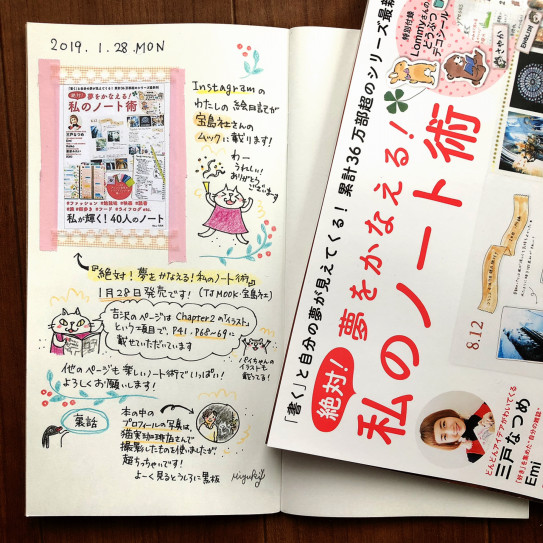 2019. 1. 28. MON
Instagramの
わたしの絵日記が
宝島社さんの
ムックに載ります!
わー
うれしい!
ありがとう
ございます
絶対!
夢をかなえる!
私のノート術
私が輝く! 40人のノート
『絶対! 夢をかなえる! 私のノート術』
1月28日発売です! (TJ MOOK・宝島社)
吉沢のページは Chapter2の「イラスト」
という項目で、P41. P68〜69に
載せていただいています
パイちゃんの
イラストも
載ってる!
他のページも楽しいノート術でいっぱい!
よろしくお願いします!
裏話
本の中の
プロフィールの写真は、
猫実珈琲店さんで
撮影したものを使いましたが
超ちっちゃいです!
よーく見るとうしろに黒板
miyuki
「書く」と自分の夢が見えてくる! 累計36万部超のシリーズ最新
絶対!
夢をかなえる!
私のノート術
特別付録
Lommyさんの
どうぶつ
デコシール
さやか
ENGLISH
8.12
どんどんアイデアがわいてくる
三戸なつめ
「好き」を集めた“自分の雑誌”
Emi